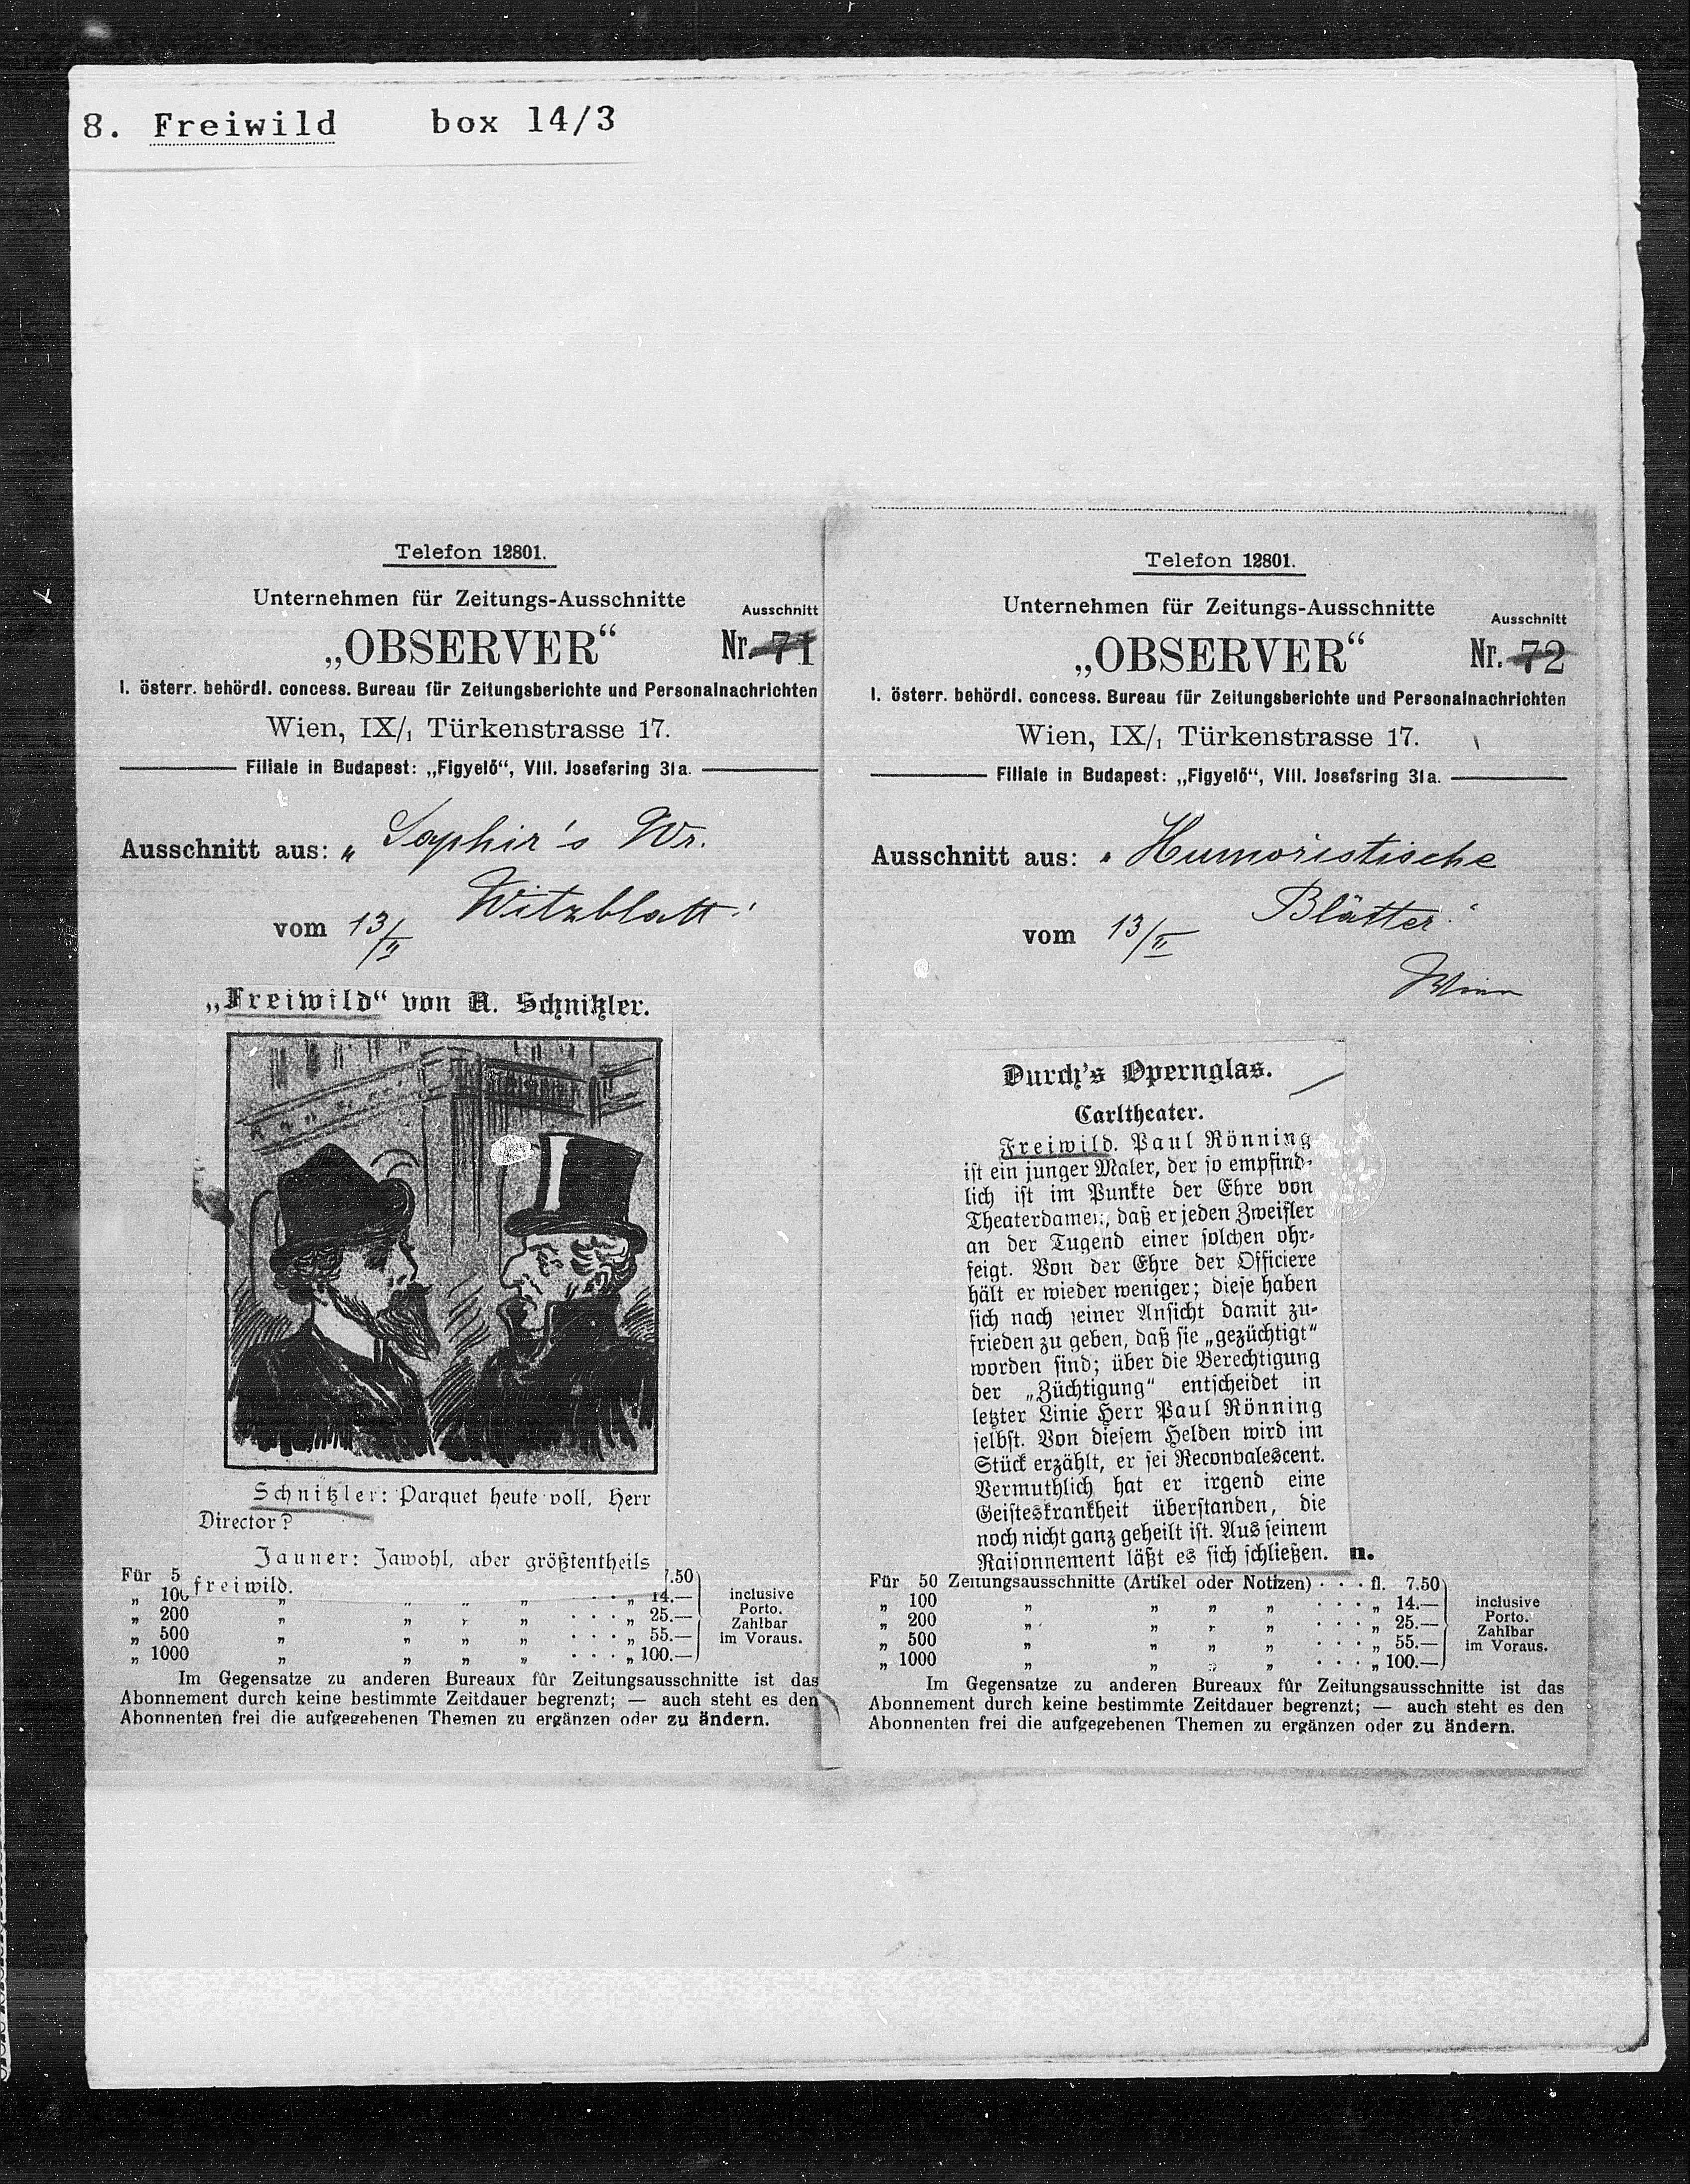 8. Freiwild box 14/3
Telefon 12801.
Unternehmen für Zeitungs-Ausschnitte
Ausschnitt
„OBSERVER“ Nr. 71
I. österr. behördl. concess. Bureau für Zeitungsberichte und Personalnachrichten
Wien, IX/1 Türkenstrasse 17.
Filiale in Budapest: „Figyelő“, VIII. Josefsring 31a.
Ausschnitt aus: „ Saphir's Wr.
Witzblatt“
vom 13/II
„Freiwild“ von A. Schnitzler.
Schnitzler: Parquet heute voll, Herr
Director?
Jauner: Jawohl, aber größtentheils
freiwild.
Für 5 7.50
„ 100 „ „ „ „ . . „ 14.—
„ 200 „ „ „ „ . . . „ 25.—
„ 500 „ „ „ „ . . . „ 55.—
„ 1000 „ „ „ „ . . . „ 100.—
inclusive
Porto.
Zahlbar
im Voraus.
Im Gegensatze zu anderen Bureaux für Zeitungsausschnitte ist das
Abonnement durch keine bestimmte Zeitdauer begrenzt; — auch steht es den
Abonnenten frei die aufgegebenen Themen zu ergänzen oder zu ändern.
Telefon 12801.
Unternehmen für Zeitungs-Ausschnitte
Ausschnitt
„OBSERVER“ Nr. 72
I. österr. behördl. concess. Bureau für Zeitungsberichte und Personalnachrichten
Wien, IX/1 Türkenstrasse 17.
Filiale in Budapest: „Figyelő“, VIII. Josefsring 31a.
Ausschnitt aus: „ Humoristische
Blätter“
vom 13/II
Wien
Durch's Opernglas.
Carltheater.
Freiwild. Paul Rönning
ist ein junger Maler, der so empfind-
lich ist im Punkte der Ehre von
Theaterdamen, daß er jeden Zweifler
an der Tugend einer solchen ohr-
feigt. Von der Ehre der Officiere
hält er wieder weniger; diese haben
sich nach seiner Ansicht damit zu-
frieden zu geben, daß sie „gezüchtigt“
worden sind; über die Berechtigung
der „Züchtigung“ entscheidet in
letzter Linie Herr Paul Rönning
selbst. Von diesem Helden wird im
Stück erzählt, er sei Reconvalescent.
Vermuthlich hat er irgend eine
Geisteskrankheit überstanden, die
noch nicht ganz geheilt ist. Aus seinem
Raisonnement läßt es sich schließen.
n.
Für 50 Zeitungsausschnitte (Artikel oder Notizen) . . . fl. 7.50
„ 100 „ „ „ „ . . . „ 14.—
„ 200 „ „ „ „ . . . „ 25.—
„ 500 „ „ „ „ . . . „ 55.—
„ 1000 „ „ „ „ . . . „ 100.—
inclusive
Porto.
Zahlbar
im Voraus.
Im Gegensatze zu anderen Bureaux für Zeitungsausschnitte ist das
Abonnement durch keine bestimmte Zeitdauer begrenzt; — auch steht es den
Abonnenten frei die aufgegebenen Themen zu ergänzen oder zu ändern.